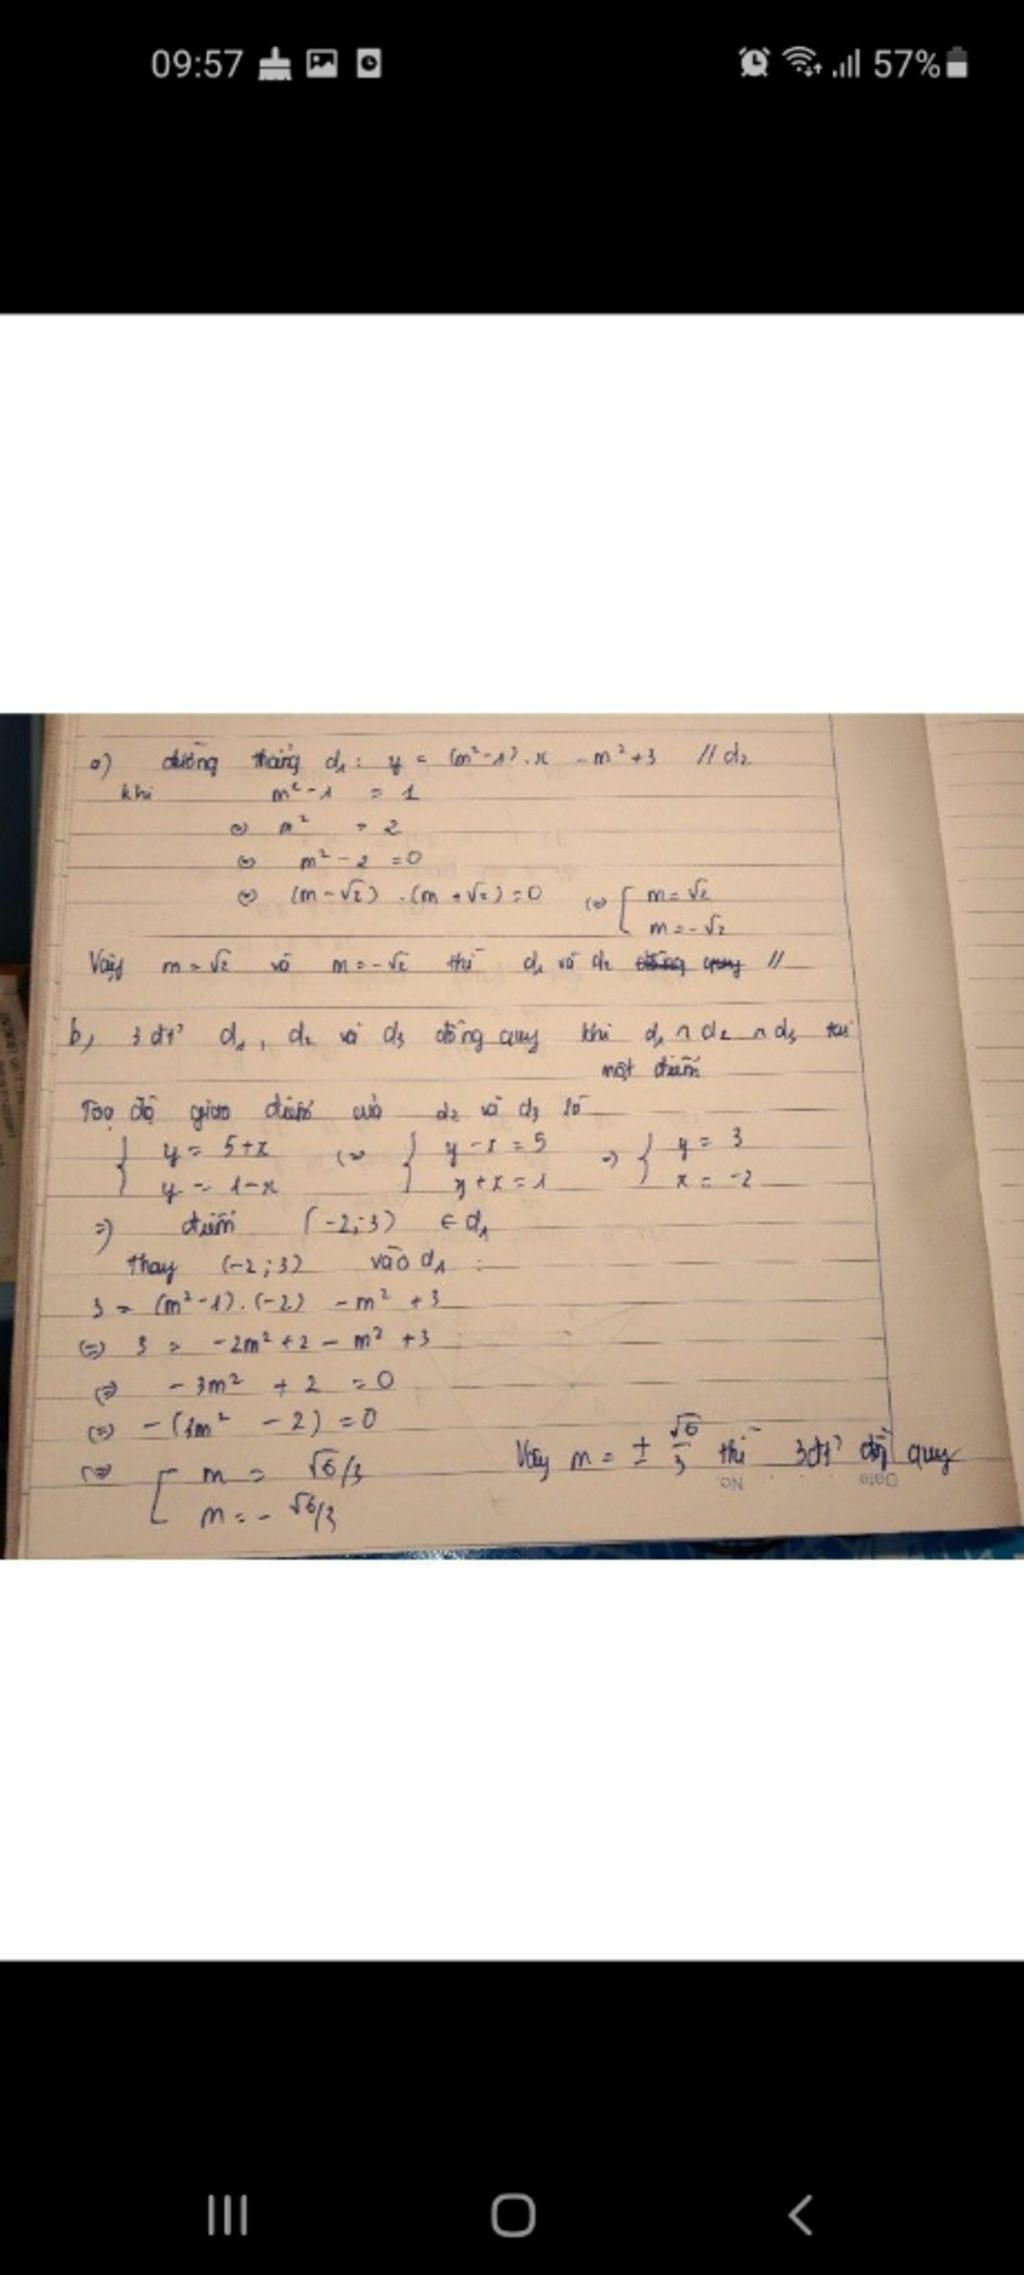 09:57 57%
a) đường thẳng d₁: y = (m²-1).x -m²+3 // d₂
khi m²-1 = 1
(=) m² = 2
(=) m²-2 =0
(=) (m-√2) .(m+√2)=0 (=) [ m=√2
m=-√2
Vậy m=√2 và m=-√2 thì d₁ và d₂ //
b, 3 đt² d₁, d₂ và d₃ đồng quy khi d₁ ∩ d₂ ∩ d₃ tại
một điểm
Toạ độ giao điểm của d₂ và d₃ là
{ y= 5+x (=) { y-x=5 => { y= 3
y= 1-x y+x=1 x= -2
=) điểm (-2;3) ∈ d₁
thay (-2;3) vào d₁ :
3 = (m²-1).(-2) -m² +3
(=) 3 = -2m²+2 - m² +3
(=) -3m² + 2 =0
(=) -(3m² -2)=0
(=) [ m= √6/3
m=- √6/3
Vậy m= ± √6/3 thì 3đt² đồng quy
No.
Date